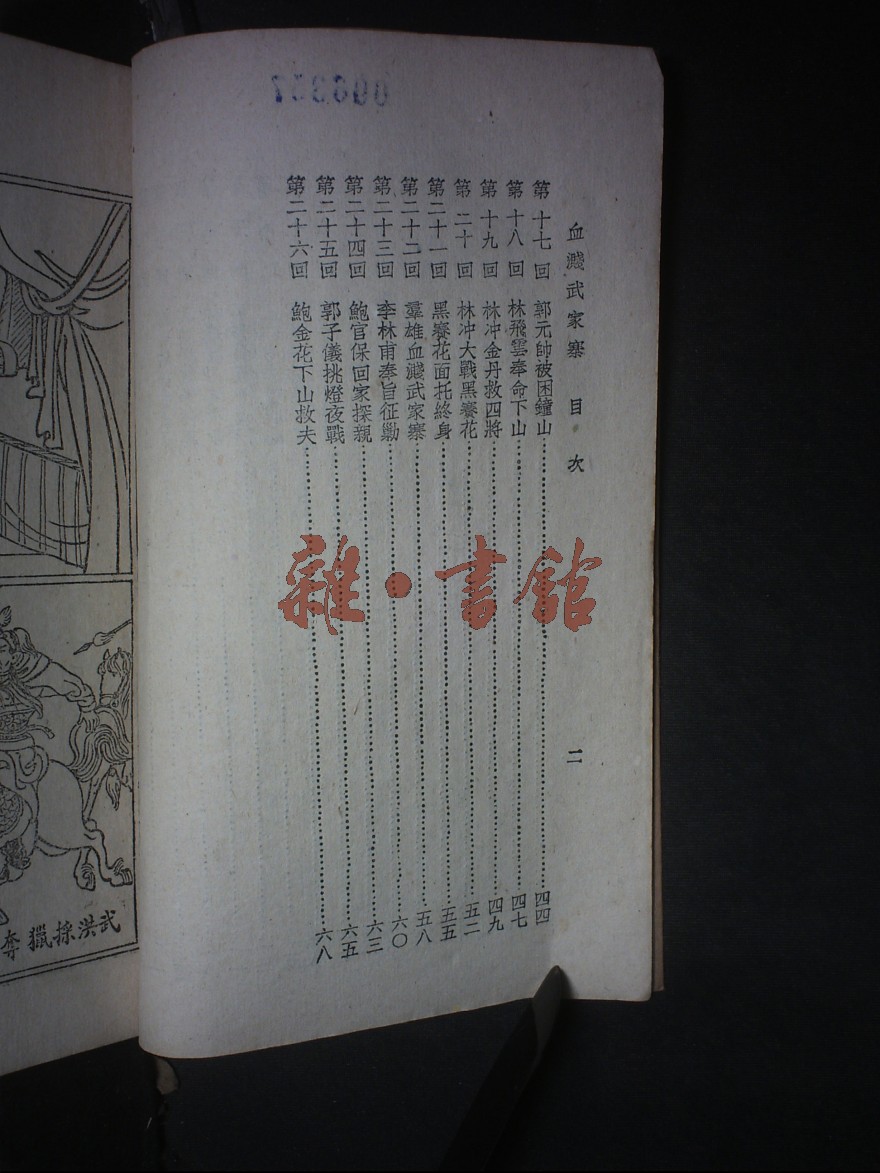 血濺武家寨 目次 二
第十七回 郭元帥被困鐘山……四四
第十八回 林飛雲奉命下山……四七
第十九回 林冲金丹救四將……四九
第二十回 林冲大戰黑賽花……五二
第二十一回 黑賽花面托終身……五五
第二十二回 羣雄血濺武家寨……五八
第二十三回 李林甫奉旨征勦……六〇
第二十四回 鮑官保回家探親……六三
第二十五回 郭子儀挑燈夜戰……六五
第二十六回 鮑金花下山救夫……六八
雜·書館
武洪採獵奪